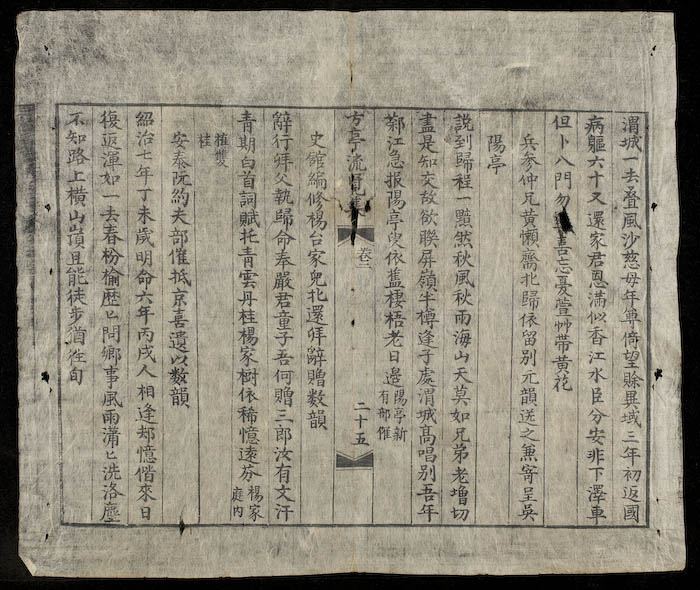 渭城一去叠風沙慈母年尊倚望賒異域三年初返國
病軀六十又還家君恩滿似香江水臣分安非下澤車
但卜八門勿 喜忘憂萱艸帶黃花
兵參仲兄黃懶齋北歸依留別元韻送之兼寄呈吳
陽亭
說到歸程一黯然秋風秋雨海山天莫如兄弟老增切
盡是知交故欲聯屏嶺半樽逢子處渭城高唱別吾年
鄰江急报陽亭叟依舊棲梧老日邉陽亭新有郁催
方亭流覽集 卷三 二十五
史館編修楊台家皃北還拜辭贈数韻
辭行拜父執歸命奉嚴君童子吾何贈三郎汝有文汗
青期白首詞賦托青雲丹桂楊家樹依稀憶遠芬楊家庭内
植雙桂
安泰阮約夫部催抵京喜遺以数韻
紹治七年丁未歲明命六年丙戌人相逢刼憶偕來日
復返渾如一去春枌榆歷匕問鄉事風雨瀟匕洗洛塵
不知路上橫山嶺且能徒步猶徃旬